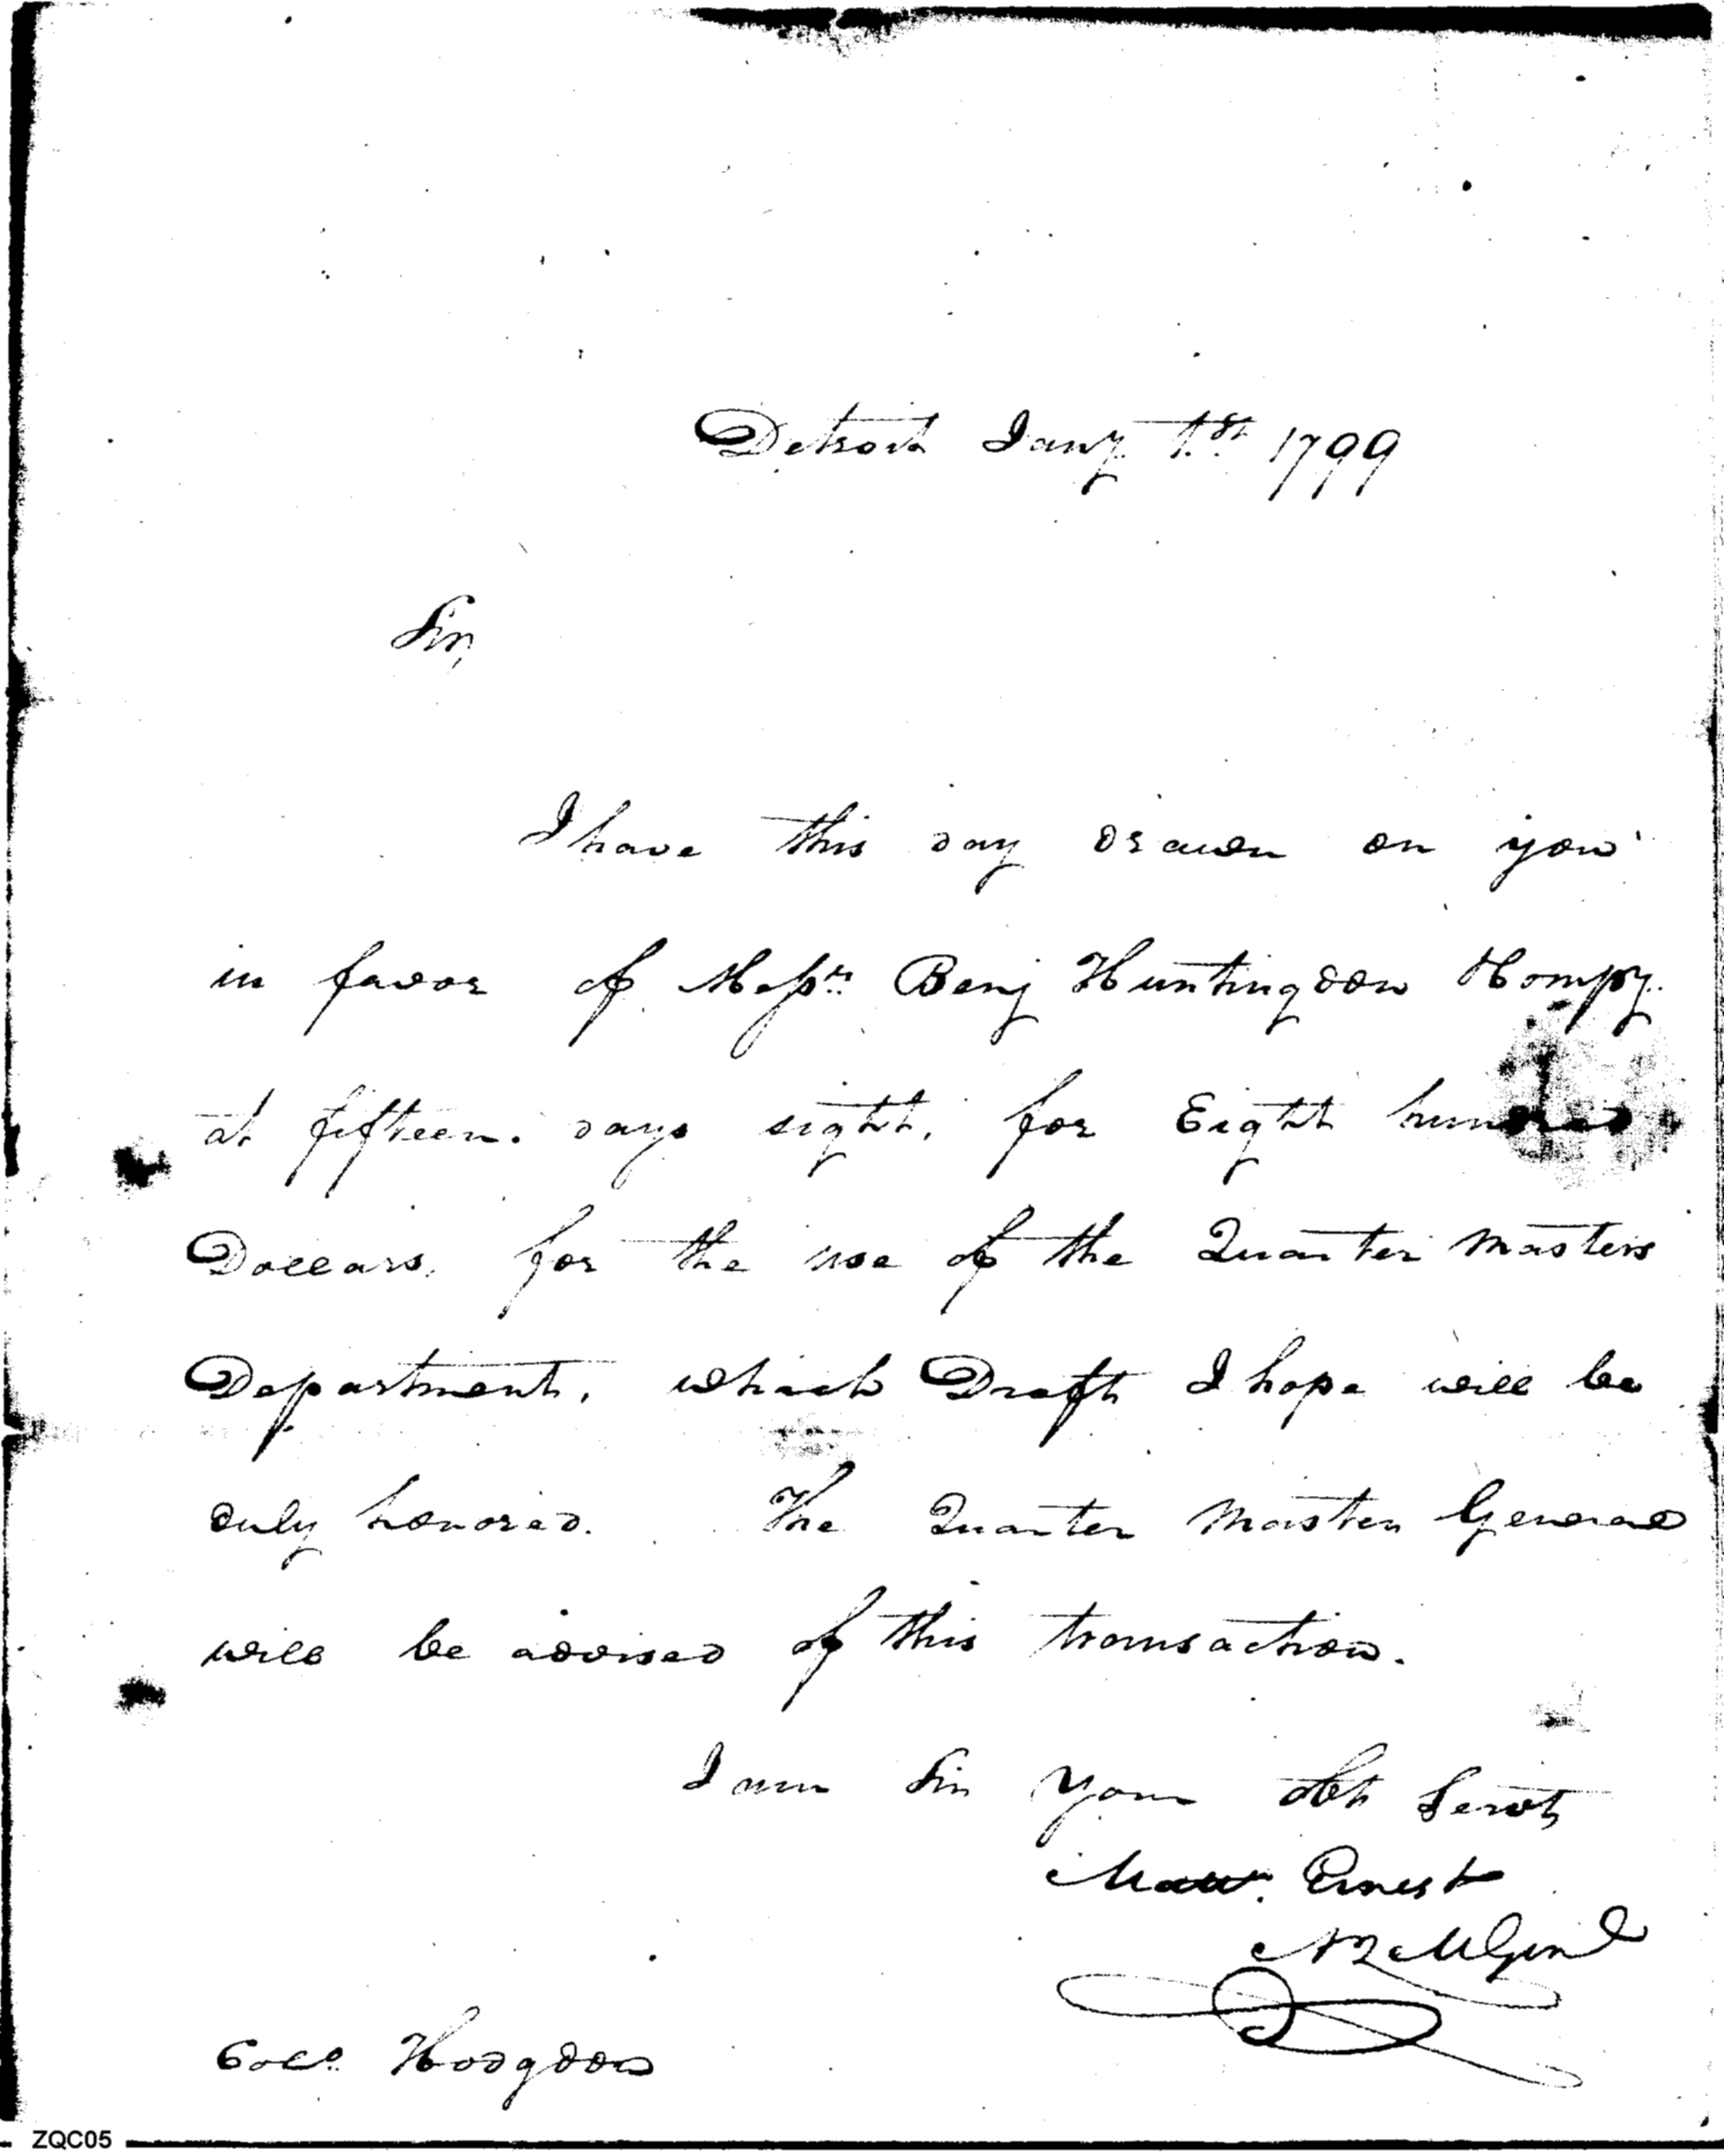 Detroit Jany. 1st. 1799
Sir,
I have this day drawn on you
in favor of Messrs. Benj Huntingdon & Compy.
at fifteen days sight, for Eight hundred
Dollars, for the use of the Quarter Masters
Department, which Draft I hope will be
duly honored. The Quarter Master General
will be advised of this transaction.
I am Sir your obt Servt,
Mattw. Ernest
A Q M Genl
Colo. Hodgdon
ZQC05